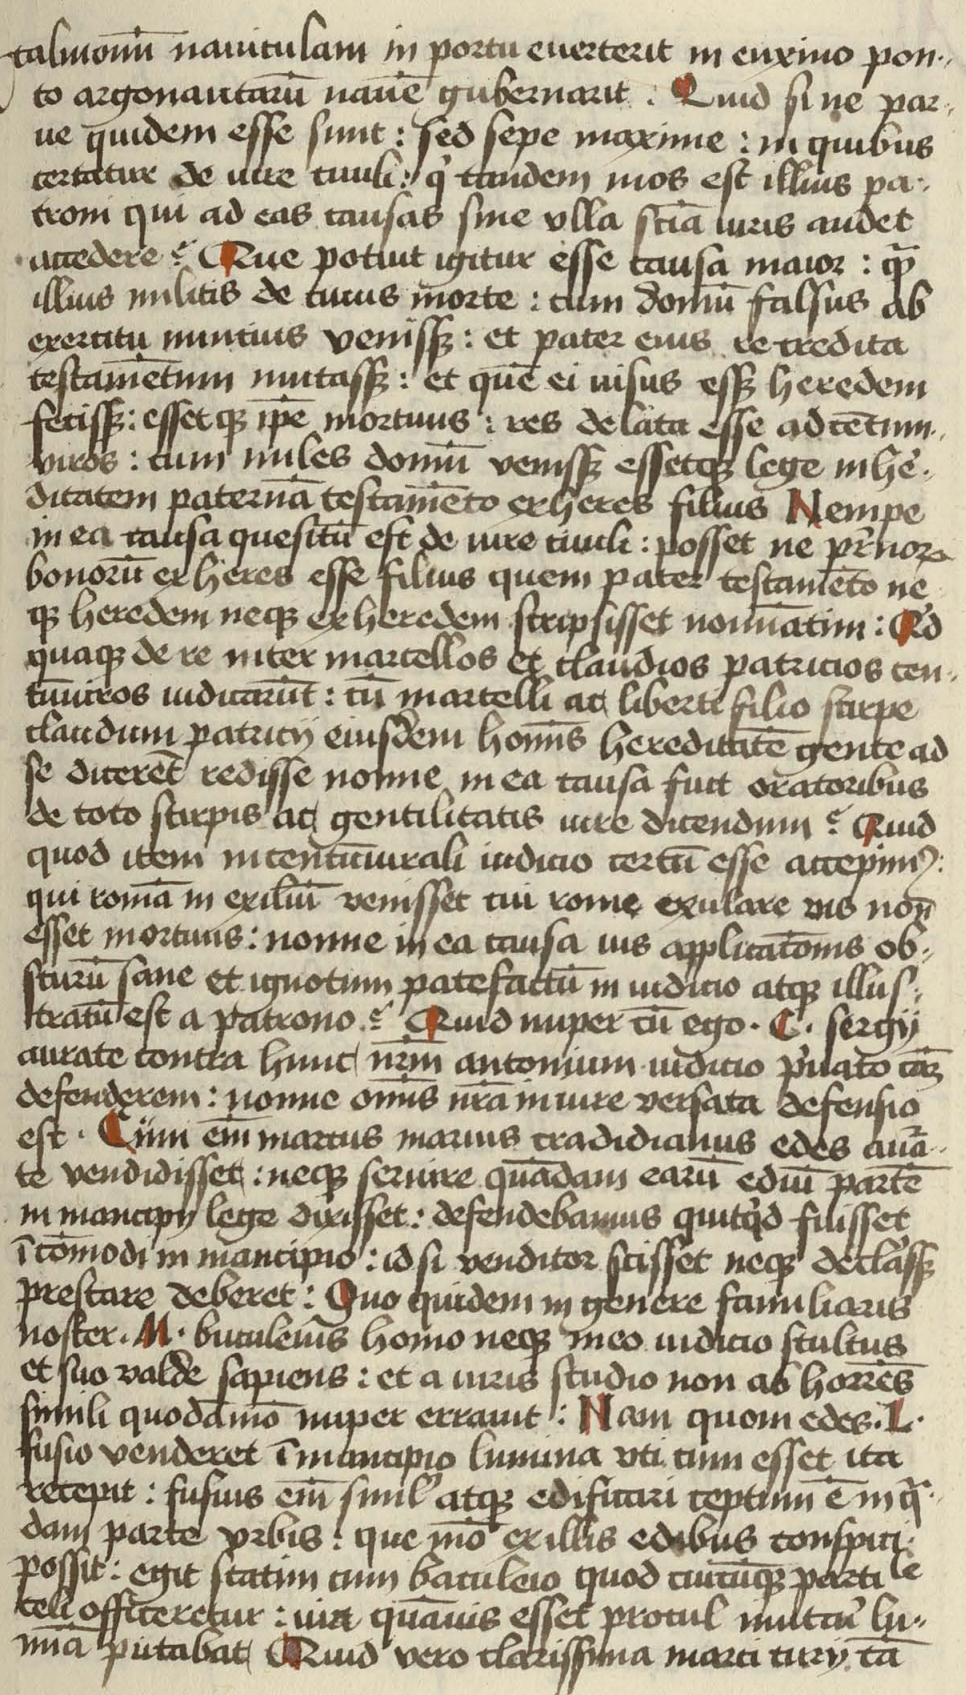 calmonū nauiculam in portu euerterit in euxino pon-
to argonautarū nauē gubernarit : Quid si ne par-
ue quidem esse sunt : sed sepe maxime : in quibus
certatur de iure ciuili : qͦ tandem mos est illius pa-
troni qui ad eas causas sine vlla sciā iuris audet
accedere ? Que potuit igitur esse causa maior : qꝫ̄
illius militis de cuius morte : cum domū falsus ab
exercitu nuntius venissꝫ : et pater eius re credita
testamētum mutassꝫ : et quē ei uisus essꝫ heredem
fecissꝫ : essetqꝫ ip̄e mortuus : res delata esse ad cētum-
uiros : cum miles domū venissꝫ essetqꝫ lege in he-
ditatem paternā testamēto exheres filius Nempe
in ea causa quesitū est de iure ciuili : posset ne pr̄nor
bonorū exheres esse filius quem pater testamēto ne
qꝫ heredem neqꝫ exheredem scripsisset nominatim : Qd
quaqꝫ de re inter marcellos et claudios patricios cen-
tūuiros iudicarūt : cū marcelli ac liberti filio stirpe
claudium patricij eiusdem homīs hereditatē gente ad
se dicerēt redisse nonne in ea causa fuit oratoribus
de toto stirpis ac gentilitatis iure dicendum ? Quid
quod item in centūuirali iudicio certū esse accepimꝰ :
qui romā in exiliū venisset cui rome exulare uis non̄
esset mortuus : nonne in ea causa ius applicatōnis ob-
scurū sane et ignotum patefactū in iudicio atqꝫ illus-
tratū est a patrono ? Quid nuper cū ego . C . sergij
aurate contra hunc nr̄m antonium iudicio p̄uato cāꝫ
defenderem : nonne omīs nr̄a in iure versata defensio
est . Cum em̄ marcus marius tradidianus edes aurā-
te vendidisset : neqꝫ seruire quādam earū ediū partē
in mancipij lege dixisset : defendebamus quicqͥd fuisset
ī cōmodi in mancipio : id si venditor scisset neqꝫ declarassꝫ
prestare deberet : Quo quidem in genere familiaris
noster . M . buculeius homo neqꝫ meo iudicio stultus
et suo valde sapiens : et a iuris studio non ab horrēs
simili quodāmō nuper errauit : Nam quom edes . L .
fusio venderet ī mancipio lumina vti cum esset ita
recepit : fusius em̄ simul atqꝫ edificari ceptum ē in qͣ-
dam parte vrbis : que mō ex illis edibus conspici
possit : egit statim cum baculeio quod cuicūqꝫ parti le
celi officeretur : uia quāuis esset procul mutari lu-
mīa putabat Quid vero clarissima marci curij cā